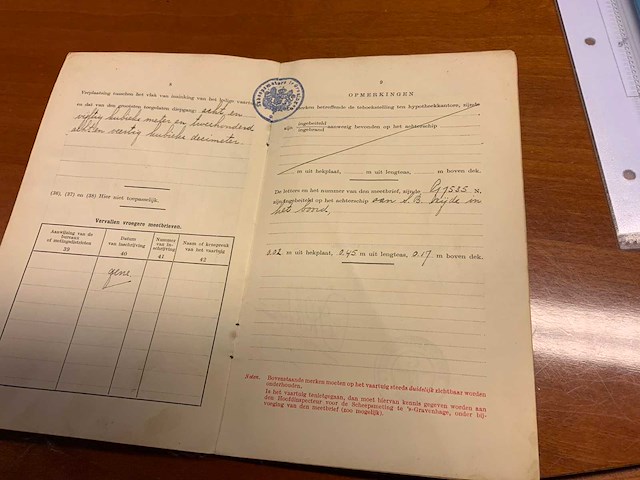 8
Verplaatsing tusschen het vlak van inzinking van het ledige vaartuig
en dat van den grootsten toegelaten diepgang: acht en
vijftig kubieke meter en tweehonderd
acht en veertig kubieke decimeter.
(36), (37) en (38) Hier niet toepasselijk.
Vervallen vroegere meetbrieven.
Aanwijzing van de bureaux of metingsdiensten
Datum van inschrijving
Nummer van inschrijving
Naam of kenspreuk van het vaartuig
39 40 41 42
geene
9
OPMERKINGEN
merken betreffende de teboekstelling ten hypotheekkantore, zijnde
zijn ingebeiteld
ingebrand aanwezig bevonden op het achterschip
m uit hekplaat, m uit lengteas, m boven dek.
De letters en het nummer van den meetbrief, zijnde G 7535 N,
zijn ingebeiteld op het achterschip aan S.B. zijde in
het boord,
0.02 m uit hekplaat, 0.45 m uit lengteas, 0.17 m boven dek.
Bovenstaande merken moeten op het vaartuig steeds duidelijk zichtbaar worden
onderhouden.
Is het vaartuig tenietgegaan, dan moet hiervan kennis gegeven worden aan
den Hoofdinspecteur voor de Scheepsmeting te 's-Gravenhage, onder bij-
voeging van den meetbrief (zoo mogelijk).